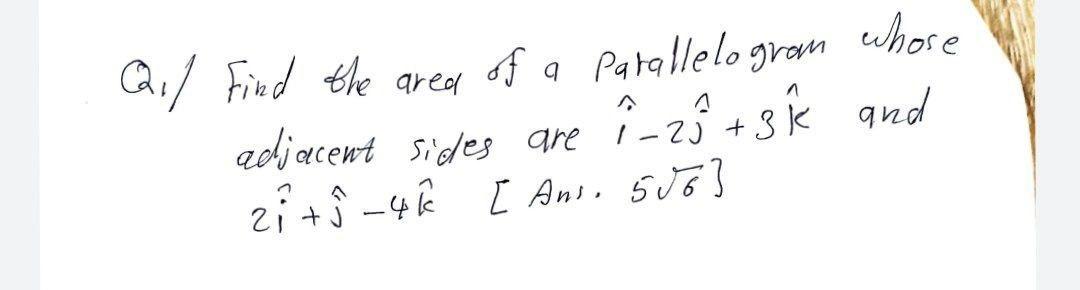 Q.1/ Find the area of a Parallelogram whose
adjacent sides are î - 2ĵ + 3k̂ and
2î + ĵ - 4k̂ [Ans. 5√6]